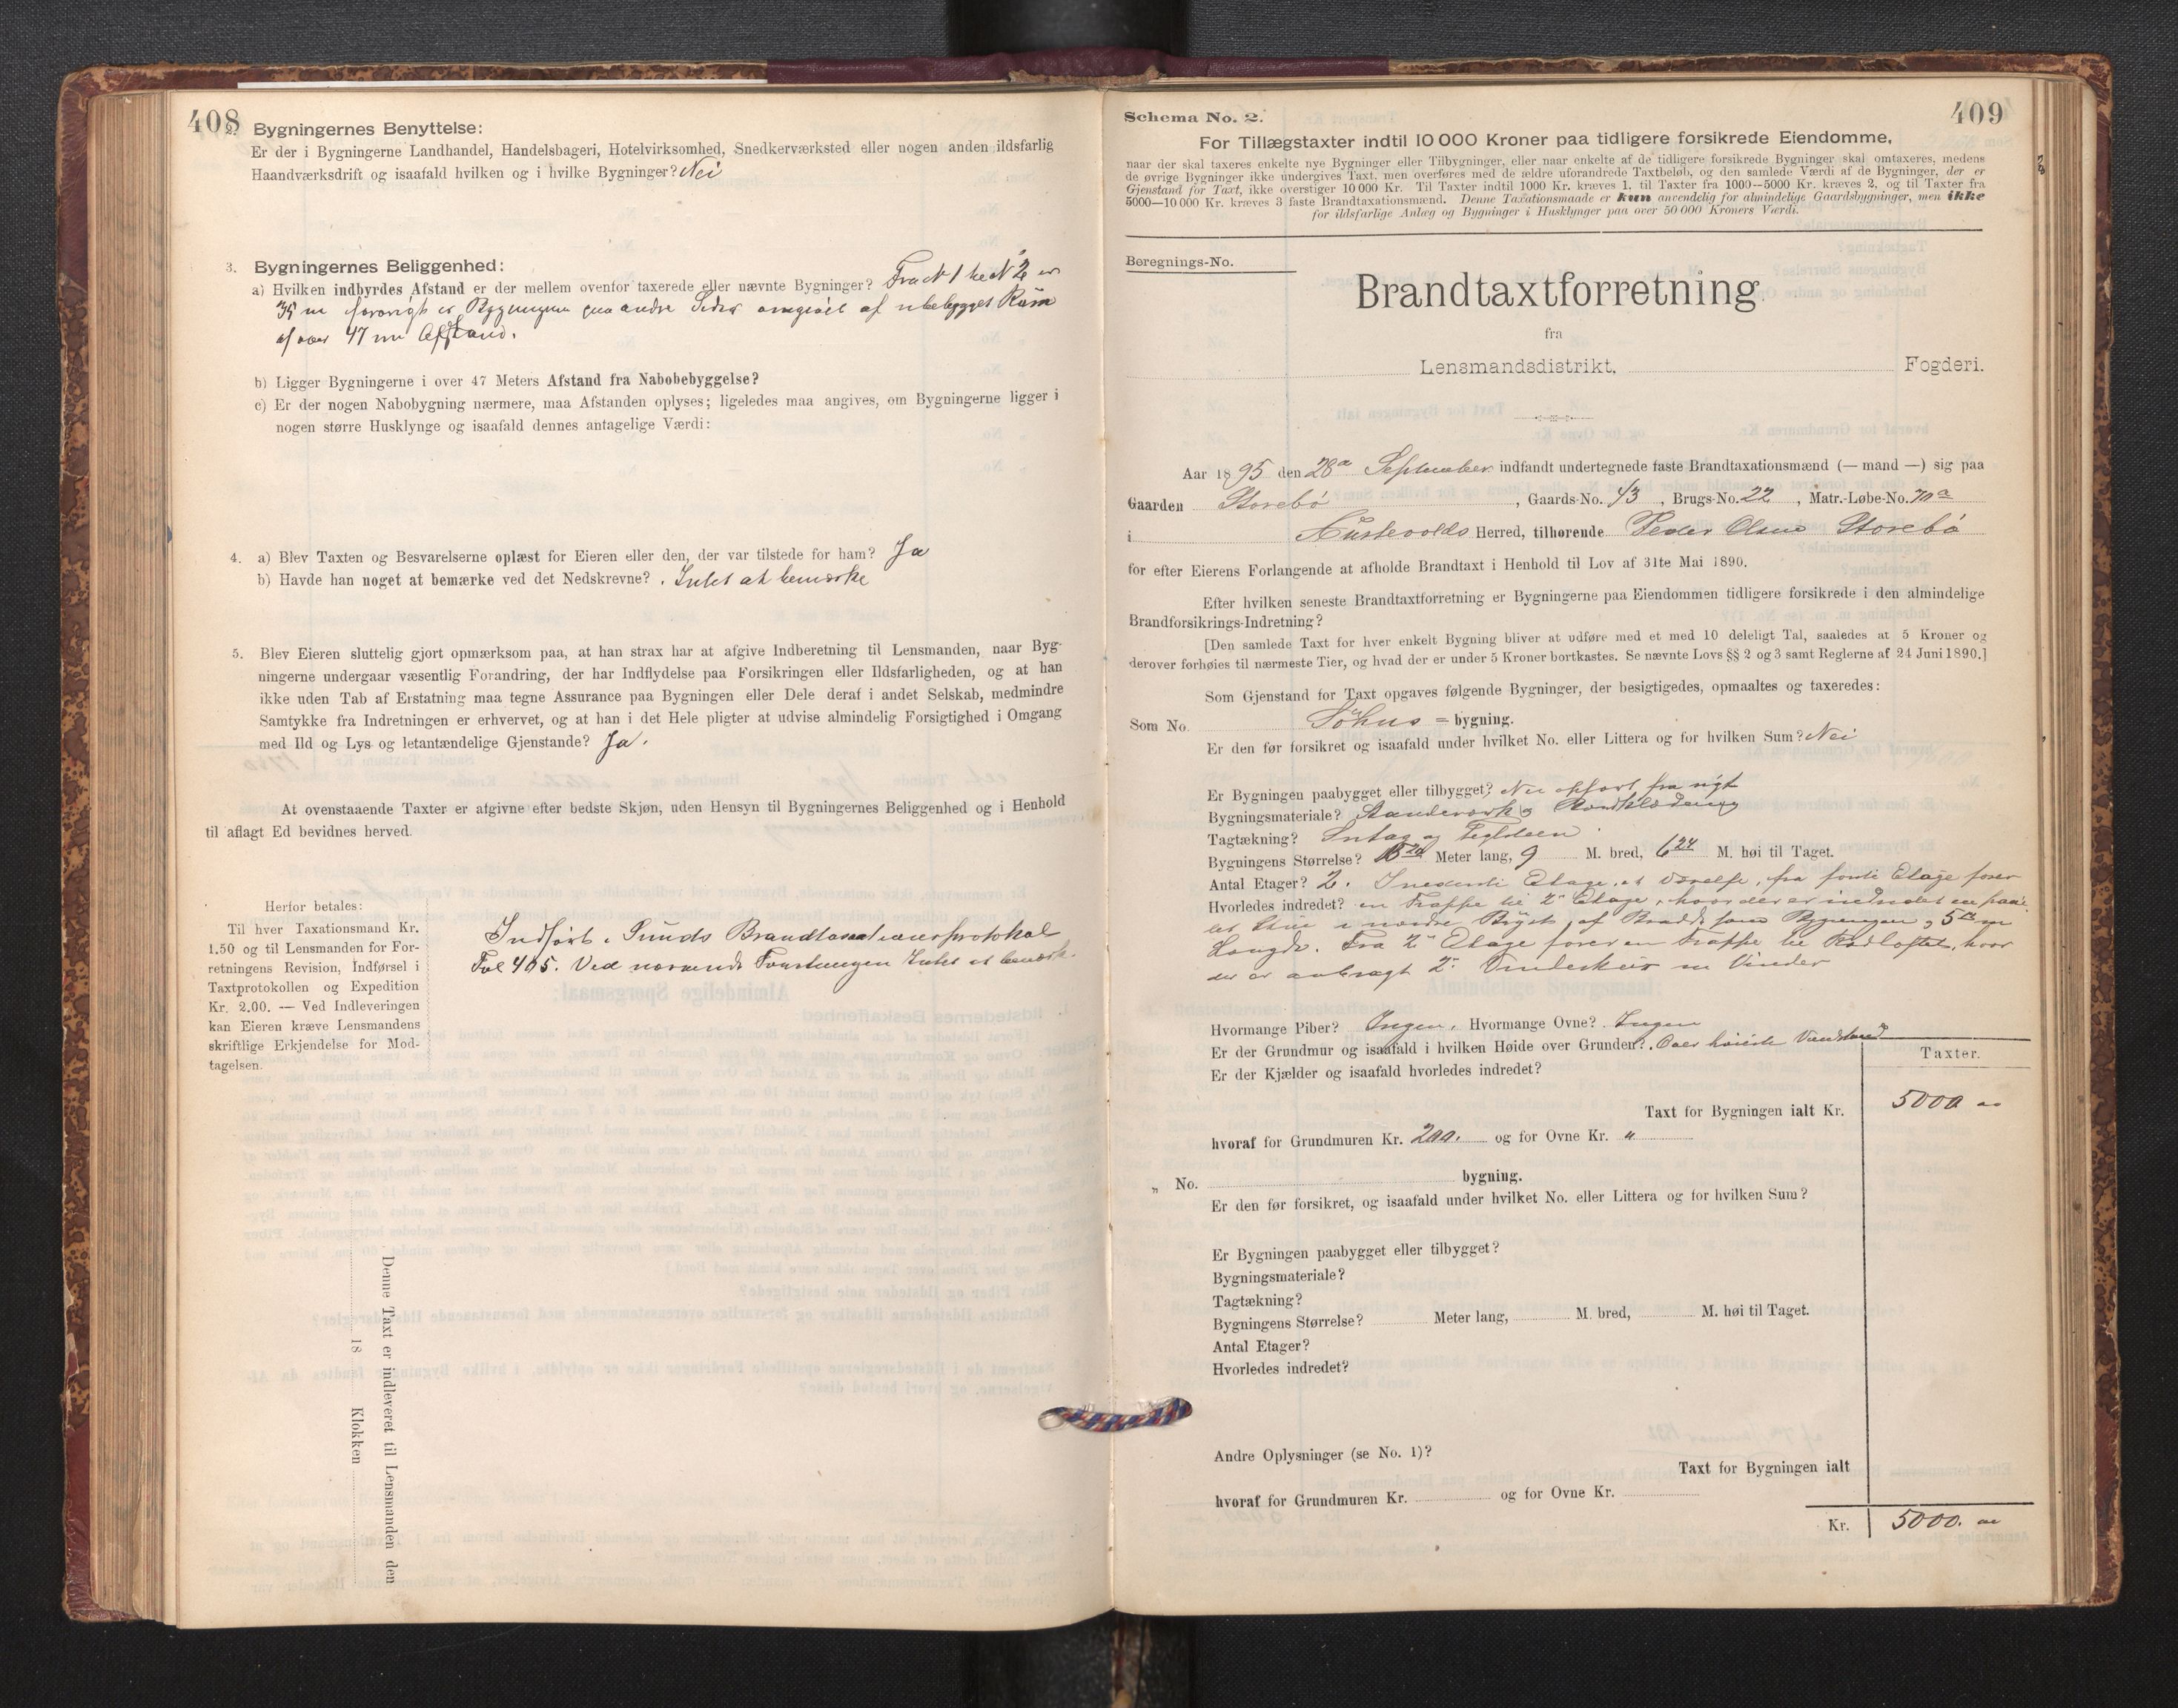 408
2. Bygningernes Benyttelse:
Er der i Bygningerne Landhandel, Handelsbageri, Hotelvirksomhed, Snedkerværksted eller nogen anden ildsfarlig
Haandværksdrift og isaafald hvilken og i hvilke Bygninger? Nei
3. Bygningernes Beliggenhed:
a) Hvilken indbyrdes Afstand er der mellem ovenfor taxerede eller nævnte Bygninger? Fra No 1 til No 2 er
35 m forøvrigt er Bygningen paa andre Sider omgivet af ubebygget Rum
af over 47 m Afstand.
b) Ligger Bygningerne i over 47 Meters Afstand fra Nabobebyggelse?
c) Er der nogen Nabobygning nærmere, maa Afstanden oplyses; ligeledes maa angives, om Bygningerne ligger i
nogen større Husklynge og isaafald dennes antagelige Værdi:
4. a) Blev Taxten og Besvarelserne oplæst for Eieren eller den, der var tilstede for ham? Ja
b) Havde han noget at bemærke ved det Nedskrevne? Intet at bemærke
5. Blev Eieren sluttelig gjort opmærksom paa, at han strax har at afgive Indberetning til Lensmanden, naar Byg-
ningerne undergaar væsentlig Forandring, der har Indflydelse paa Forsikringen eller Ildsfarligheden, og at han
ikke uden Tab af Erstatning maa tegne Assurance paa Bygningen eller Dele deraf i andet Selskab, medmindre
Samtykke fra Indretningen er erhvervet, og at han i det Hele pligter at udvise almindelig Forsigtighed i Omgang
med Ild og Lys og letantændelige Gjenstande? Ja.
At ovenstaaende Taxter er afgivne efter bedste Skjøn, uden Hensyn til Bygningernes Beliggenhed og i Henhold
til aflagt Ed bevidnes herved.
Herfor betales:
Til hver Taxationsmand Kr.
1.50 og til Lensmanden for For-
retningens Revision, Indførsel i
Taxtprotokollen og Expedition
Kr. 2.00. — Ved Indleveringen
kan Eieren kræve Lensmandens
skriftlige Erkjendelse for Mod-
tagelsen.
Indført i Sunds Brandtaxationsprotokol
Fol 405. Ved Intet at bemærk.
Denne Taxt er indleveret til Lensmanden den
18 Klokken
409
Schema No. 2.
For Tillægstaxter indtil 10 000 Kroner paa tidligere forsikrede Eiendomme,
naar der skal taxeres enkelte nye Bygninger eller Tilbygninger, eller naar enkelte af de tidligere forsikrede Bygninger skal omtaxeres, medens
de øvrige Bygninger ikke undergives Taxt, men overføres med de ældre uforandrede Taxtbeløb, og den samlede Værdi af de Bygninger, der er
Gjenstand for Taxt, ikke overstiger 10 000 Kr. Til Taxter indtil 1000 Kr. kræves 1, til Taxter fra 1000—5000 Kr. kræves 2, og til Taxter fra
5000—10 000 Kr. kræves 3 faste Brandtaxationsmænd. Denne Taxationsmaade er kun anvendelig for almindelige Gaardsbygninger, men ikke
for ildsfarlige Anlæg og Bygninger i Husklynger paa over 50 000 Kroners Værdi.
Beregnings-No.
Brandtaxtforretning
fra
Lensmandsdistrikt, Fogderi.
Aar 1895 den 28a September indfandt undertegnede faste Brandtaxationsmænd (— mand —) sig paa
Gaarden Storebø, Gaards-No. 43, Brugs-No. 22, Matr.-Løbe-No. 70a
i Austevolds Herred, tilhørende Peder Olsen Storebø
for efter Eierens Forlangende at afholde Brandtaxt i Henhold til Lov af 31te Mai 1890.
Efter hvilken seneste Brandtaxtforretning er Bygningerne paa Eiendommen tidligere forsikrede i den almindelige
Brandforsikrings-Indretning?
[Den samlede Taxt for hver enkelt Bygning bliver at udføre med et med 10 deleligt Tal, saaledes at 5 Kroner og
derover forhøies til nærmeste Tier, og hvad der er under 5 Kroner bortkastes. Se nævnte Lovs §§ 2 og 3 samt Reglerne af 24 Juni 1890.]
Som Gjenstand for Taxt opgaves følgende Bygninger, der besigtigedes, opmaaltes og taxeredes:
Som No. Søhus = bygning.
Er den før forsikret og isaafald under hvilket No. eller Littera og for hvilken Sum? Nei
Er Bygningen paabygget eller tilbygget? Nei opført fra nyt
Bygningsmateriale? Standerverk og Bordklædning
Tagtækning? Sutag og Teglsteen
Bygningens Størrelse? Meter lang, 9 M. bred, 6 24 M. høi til Taget.
Antal Etager? 2. I nederste Etage, et Værelse, fra første Etage fører
Hvorledes indredet? en Trappe til 2 Etage, hvor der er indredet en
Stue i nordre af Bredde som Bygningen, 5 m
Længde. Fra 2 Etage fører en Trappe til Rodloftet, hvor
der er anbragt 2 m Vinder
Hvormange Piber? Ingen. Hvormange Ovne? Ingen
Er der Grundmur og isaafald i hvilken Høide over Grunden? Over høieste Vandstand
Er der Kjælder og isaafald hvorledes indredet?
Taxter.
Taxt for Bygningen ialt Kr. 5000
hvoraf for Grundmuren Kr. 200. og for Ovne Kr. "
„ No. bygning.
Er den før forsikret, og isaafald under hvilket No. eller Littera og for hvilken Sum?
Er Bygningen paabygget eller tilbygget?
Bygningsmateriale?
Tagtækning?
Bygningens Størrelse? Meter lang, M. bred, M. høi til Taget.
Antal Etager?
Hvorledes indredet?
Andre Oplysninger (se No. 1)?
Taxt for Bygningen ialt
hvoraf for Grundmuren Kr. og for Ovne Kr.
Kr. 5000.